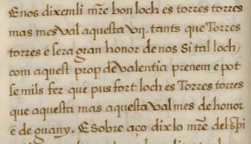 E nos dixem li mr̃e bon loch es torres torres
mas mes val aquesta vij. tants que Torres
torres e sera gran honor de nos Si tal loch
com aquest prop de valentia prenem e pot
se mils fer que pus fort loch es Torres torres
que aquesta mas aquesta val mes de honor
e de guany. E sobre aço dix lo mr̃e del spi